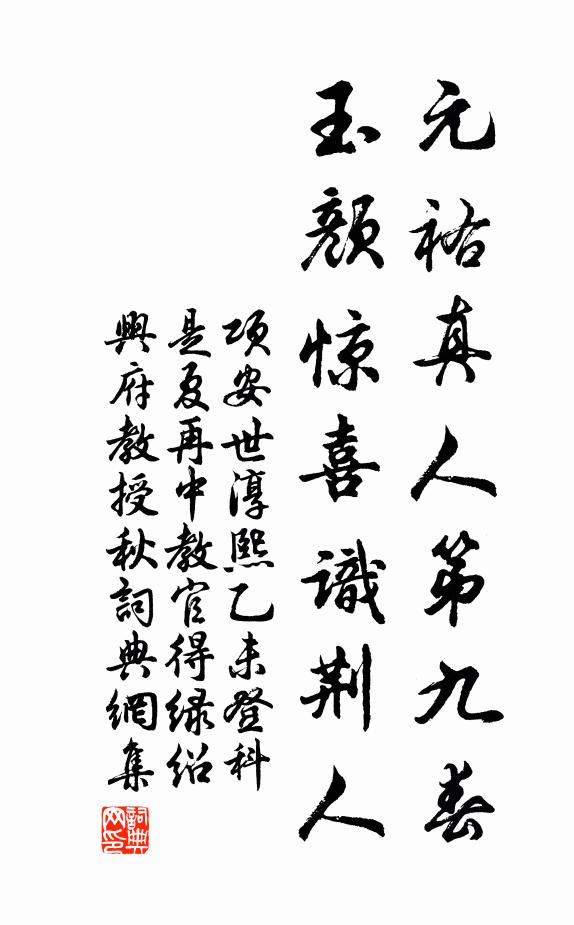 元祐真人第九春
玉顏惊喜識荆人
项安世淳熙乙未登科
是夏再中教官得绿绍
興府教授秋詞典網集
詞典网印